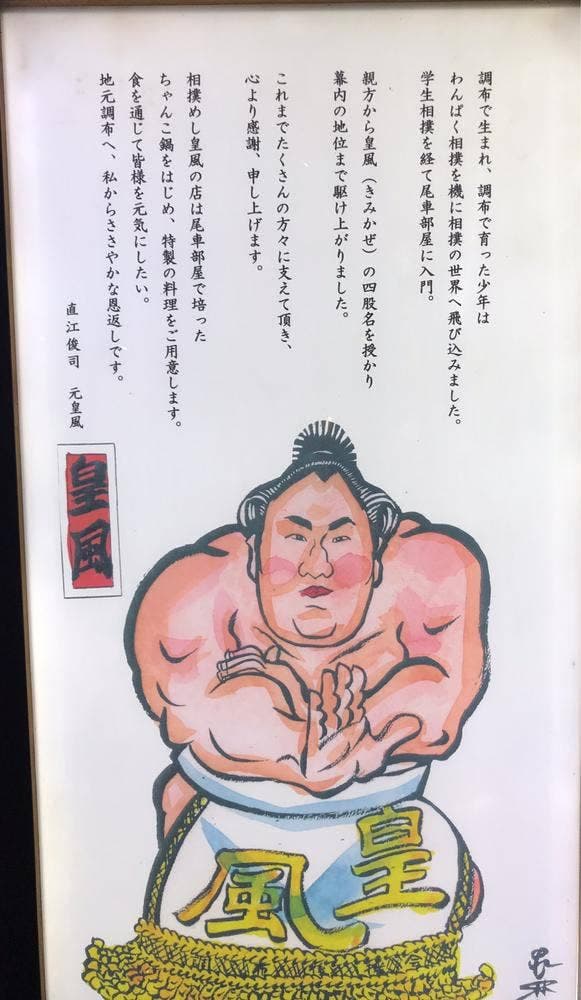 調布で生まれ、調布で育った少年は
わんぱく相撲を機に相撲の世界へ飛び込みました。
学生相撲を経て尾車部屋に入門。
親方から皇風（きみかぜ）の四股名を授かり
幕内の地位まで駆け上がりました。
これまでたくさんの方々に支えて頂き、
心より感謝、申し上げます。
相撲めし皇風の店は尾車部屋で培った
ちゃんこ鍋をはじめ、特製の料理をご用意します。
食を通じて皆様を元気にしたい。
地元調布へ、私からささやかな恩返しです。
直江俊司　元皇風
皇風
皇風